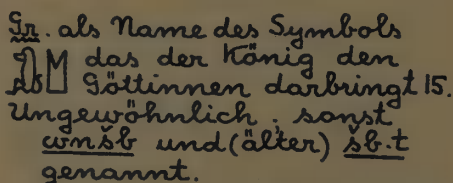 Gr. als Name des Symbols
das der König den
Göttinnen darbringt 15.
Ungewöhnlich, sonst
wnšb und (älter) šb.t
genannt.